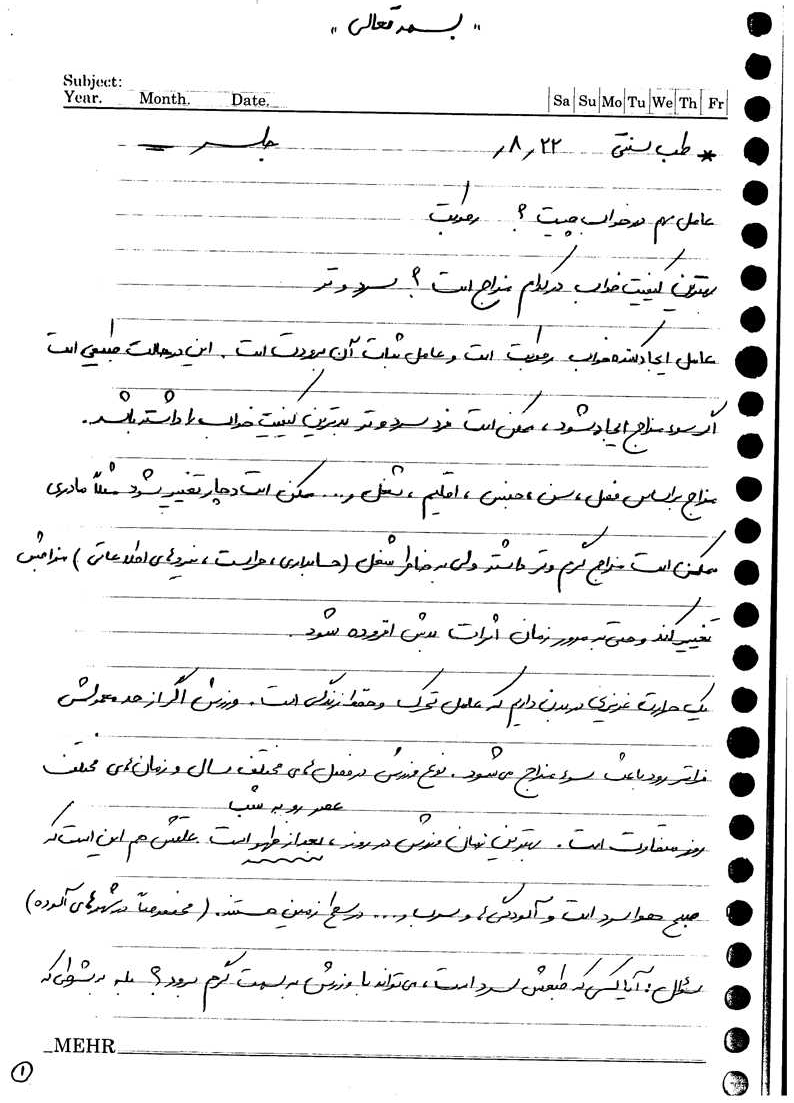 "بسمه تعالی"
Subject:
Year. Month. Date. Sa Su Mo Tu We Th Fr
* طب سنتی ۸٫۲۲٫ جلسه
عامل مهم در خواب چیست؟ رطوبت
بهترین کیفیت خواب در کدام مزاج است؟ سرد و تر
عامل ایجاد کننده خواب رطوبت است و عامل ثبات آن برودت است. این در حالت طبیعی است
اگر سوء مزاج ایجاد شود، ممکن است فرد سرد و تر بدترین کیفیت خواب را داشته باشد.
مزاج بر اساس فصل، سن، جنس، اقلیم، شغل و... ممکن است دچار تغییر شود مثلاً مادری
ممکن است مزاج گرم و تر داشته ولی به خاطر شغل (حسابداری، حراست، نیروهای اطلاعاتی) مزاجش
تغییر کند و حتی به مرور زمان اثرات بدش افزوده شود.
یک حرارت غریزی در بدن داریم که عامل تحرک و حفظ زندگی است. ورزش اگر از حد معمولش
فراتر رود باعث سوء مزاج می‌شود. نوع ورزش در فصل‌های مختلف سال و زمان‌های مختلف
عصر رو به شب
روز متفاوت است. بهترین زمان ورزش در روز، بعد از ظهر است علتش هم این است که
صبح هوا سرد است و آلودگی‌ها و سرب و... در سطح زمین هستند. (مخصوصاً در شهرهای آلوده)
سؤال: آیا کسی که طبعش سرد است، می‌تواند با ورزش به سمت گرم برود؟ بله به شرطی که
MEHR
۱